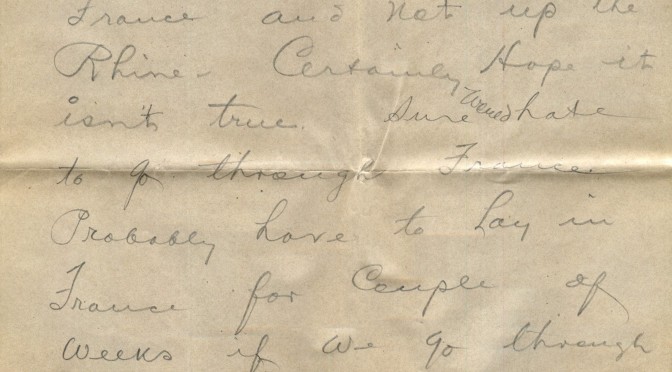 France and not up the
Rhine- Certainly Hope it
isn't true. Sure would hate
to go through France
Probably have to Lay in
France for Couple of
weeks if we go through